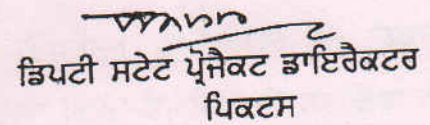 ਡਿਪਟੀ ਸਟੇਟ ਪ੍ਰੋਜੈਕਟ ਡਾਇਰੈਕਟਰ
ਪਿਕਟਸ